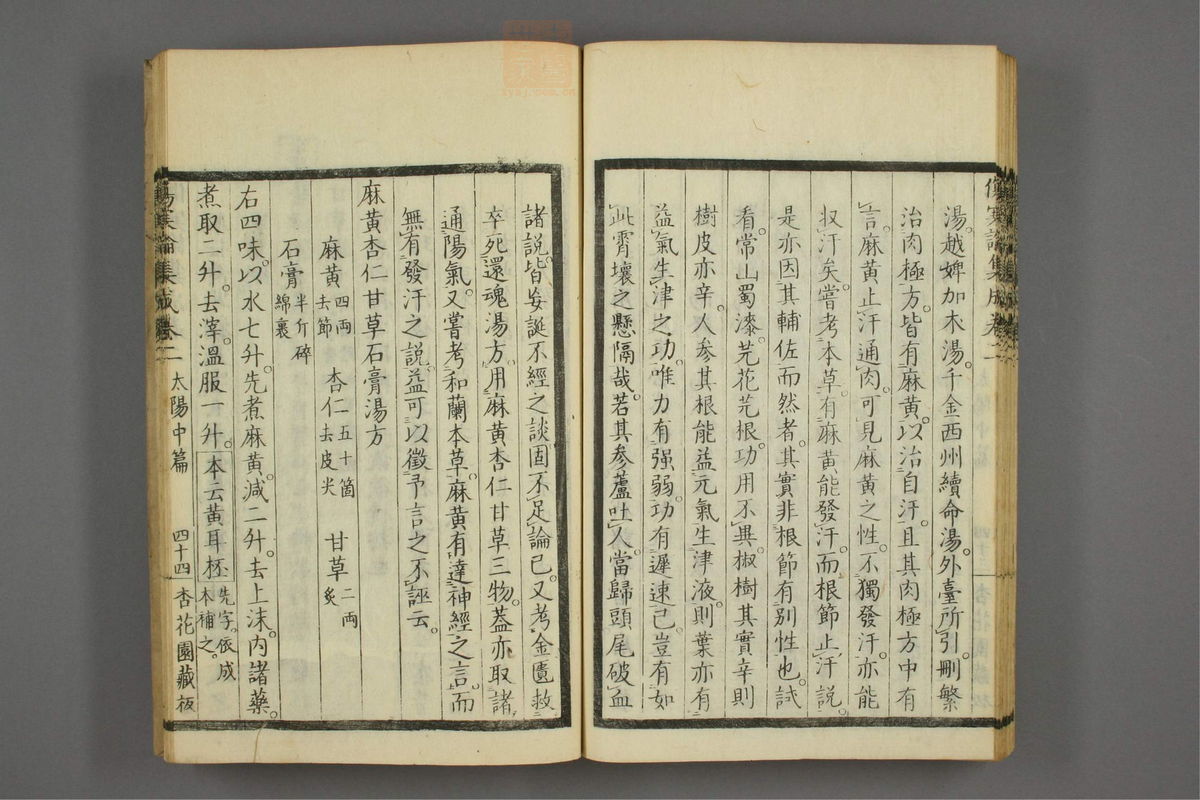 湯越婢加朮湯千金西州續命湯外臺所引刪繁
治肉極方皆有麻黄以治自汗且其肉極方中有
言麻黄止汗通肉可見麻黄之性不獨發汗亦能
収汗矣嘗考本草有麻黄能發汗而根節止汗說
是亦因其輔佐而然者其實非根節有別性也試
看常山蜀漆芫花芫根功用不異椒樹其實辛則
樹皮亦辛人参其根能益元氣生津液則葉亦有
益氣生津之功唯力有强弱功有遲速已豈有如
此霄壤之懸隔哉若其参蘆吐人當歸頭尾破血
諸說皆妄誕不經之談固不足論已又考金匱救
卒死還魂湯方用麻黄杏仁甘草三物蓋亦取諸
通陽氣又嘗考和蘭本草麻黄有達神經之言而
無有發汗之說益可以徵予言之不誣云
麻黄杏仁甘草石膏湯方
麻黄四兩去節 杏仁五十箇去皮尖 甘草二兩炙
石膏半斤碎綿裹
右四味以水七升先煮麻黄減二升去上沫内諸藥
煮取二升去滓溫服一升本云黄耳杯先字依成本補之
傷寒論集成 卷二 太陽中篇 四十四 杏花園藏板